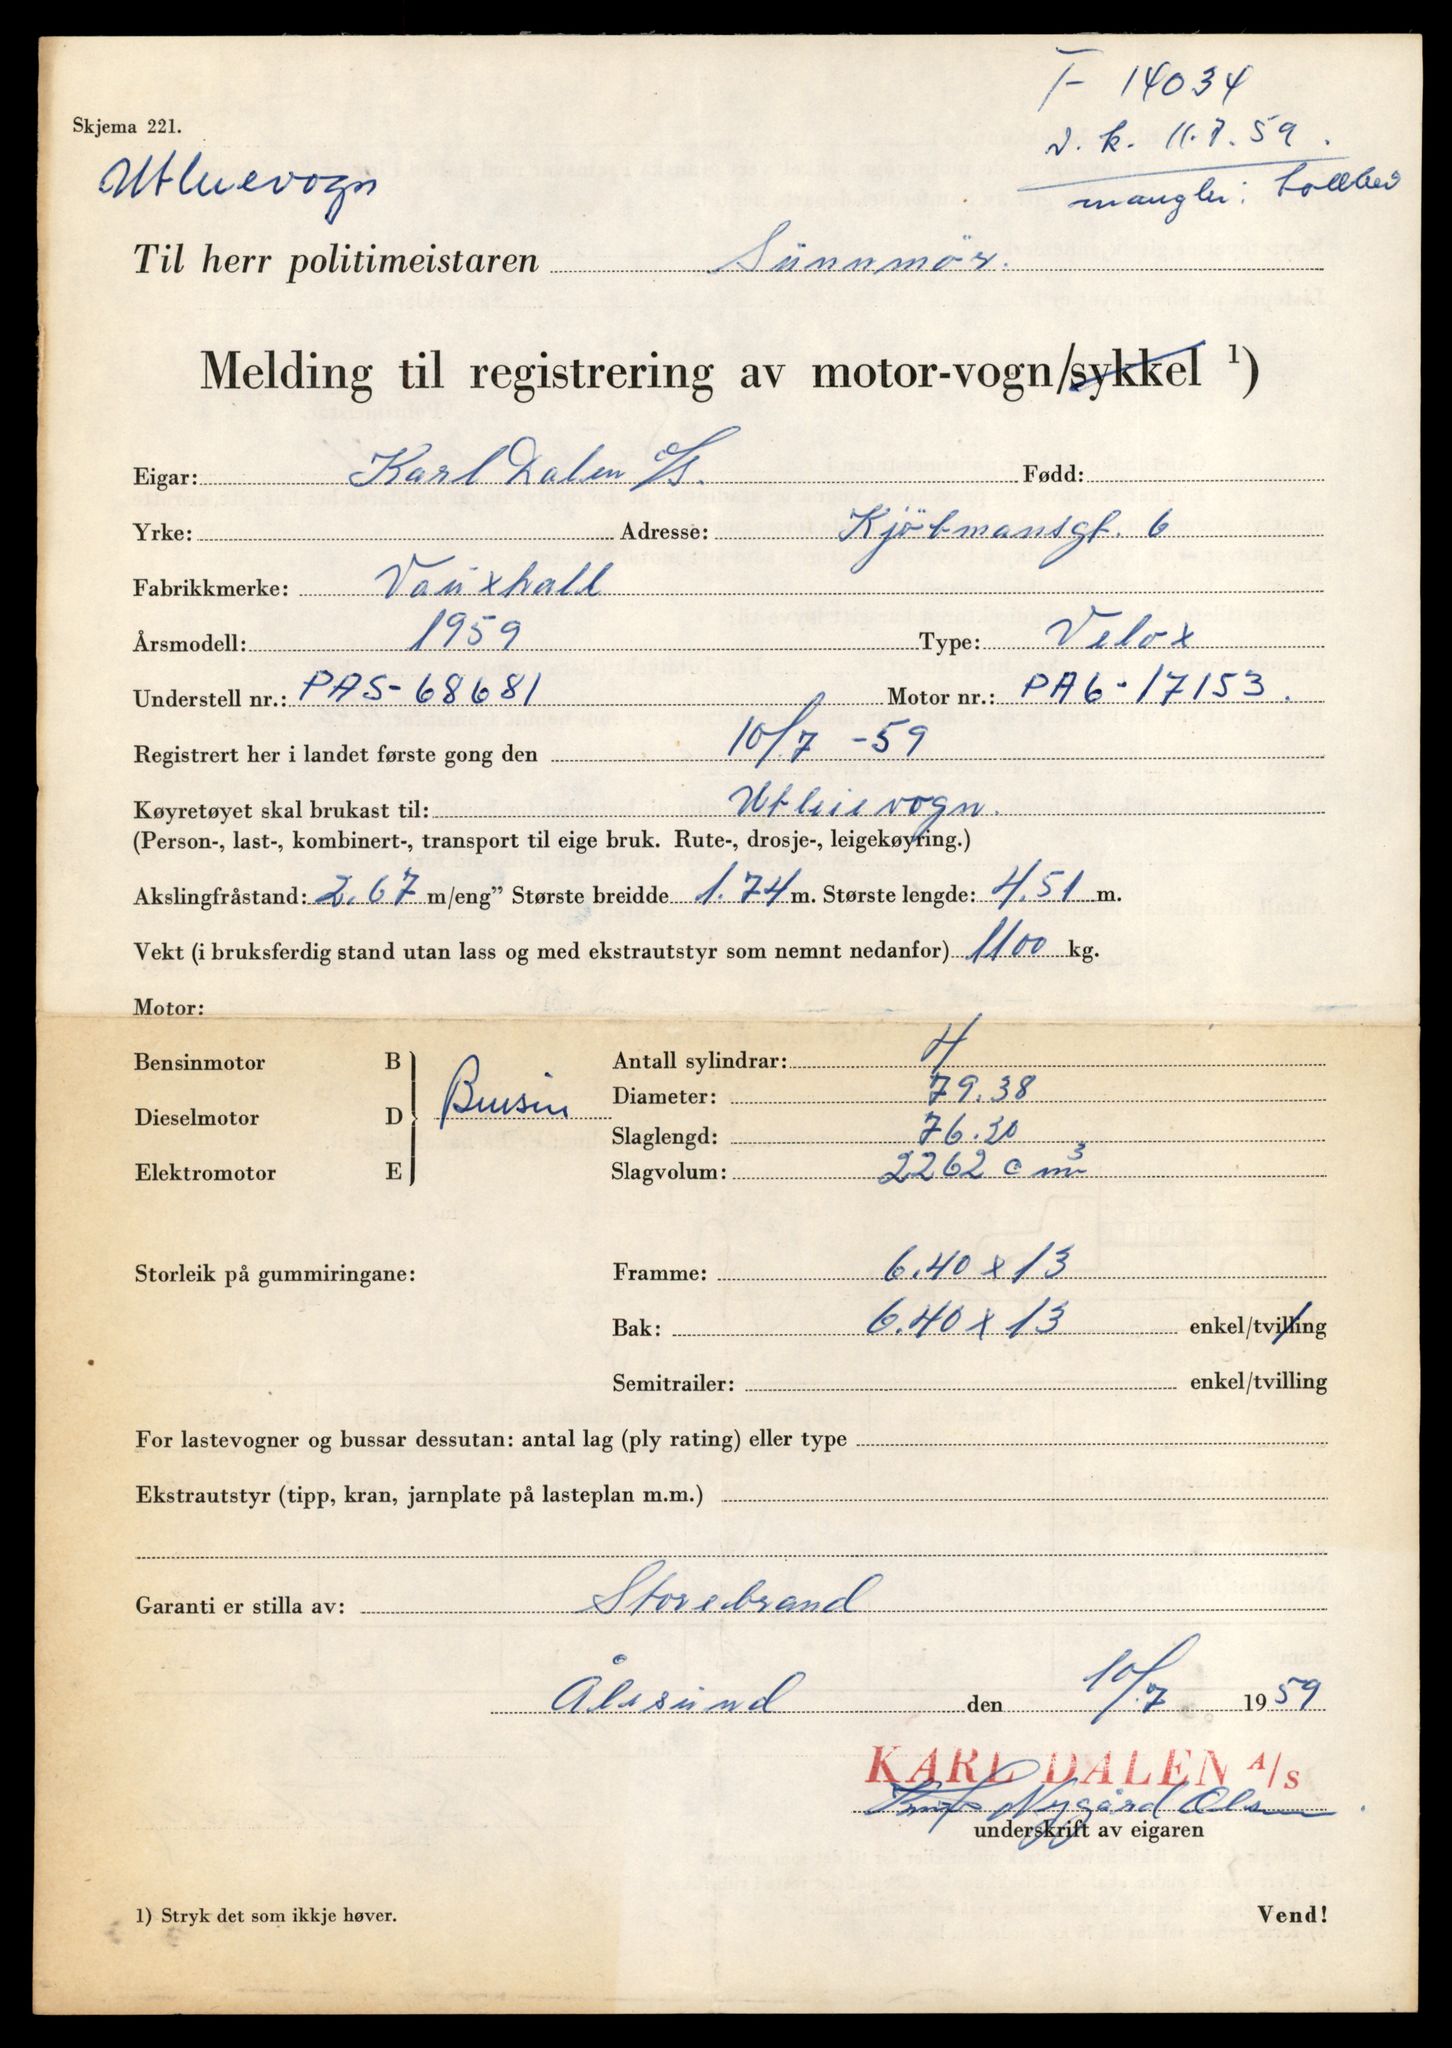 T- 14034
Skjema 221.
v. k. 11.7.59.
Utleievogn
mangler: tollbev
Til herr politimeistaren Sunnmör.
Melding til registrering av motor-vogn/sykkel ¹)
Eigar: Karl Dalen A/S. Fødd:
Yrke: Adresse: Kjöbmansgt. 6
Fabrikkmerke: Vauxhall
Årsmodell: 1959 Type: Velox
Understell nr.: PAS-68681 Motor nr.: PA6-17153.
Registrert her i landet første gong den 10/7 -59
Køyretøyet skal brukast til: Utleievogn.
(Person-, last-, kombinert-, transport til eige bruk. Rute-, drosje-, leigekøyring.)
Akslingfråstand: 2.67 m/eng” Største breidde 1.74 m. Største lengde: 4.51 m.
Vekt (i bruksferdig stand utan lass og med ekstrautstyr som nemnt nedanfor) 1100 kg.
Motor:
Bensinmotor B Antall sylindrar: 4
Bensin Diameter: 79.38
Dieselmotor D Slaglengd: 76.20
Elektromotor E Slagvolum: 2262 cm³
Storleik på gummiringane: Framme: 6.40 x 13
Bak: 6.40 x 13 enkel/tvilling
Semitrailer: enkel/tvilling
For lastevogner og bussar dessutan: antal lag (ply rating) eller type
Ekstrautstyr (tipp, kran, jarnplate på lasteplan m.m.)
Garanti er stilla av: Storebrand
Ålesund den 10/7 1959
KARL DALEN A/S
Nygård Olsen
underskrift av eigaren
1) Stryk det som ikkje høver.
Vend!